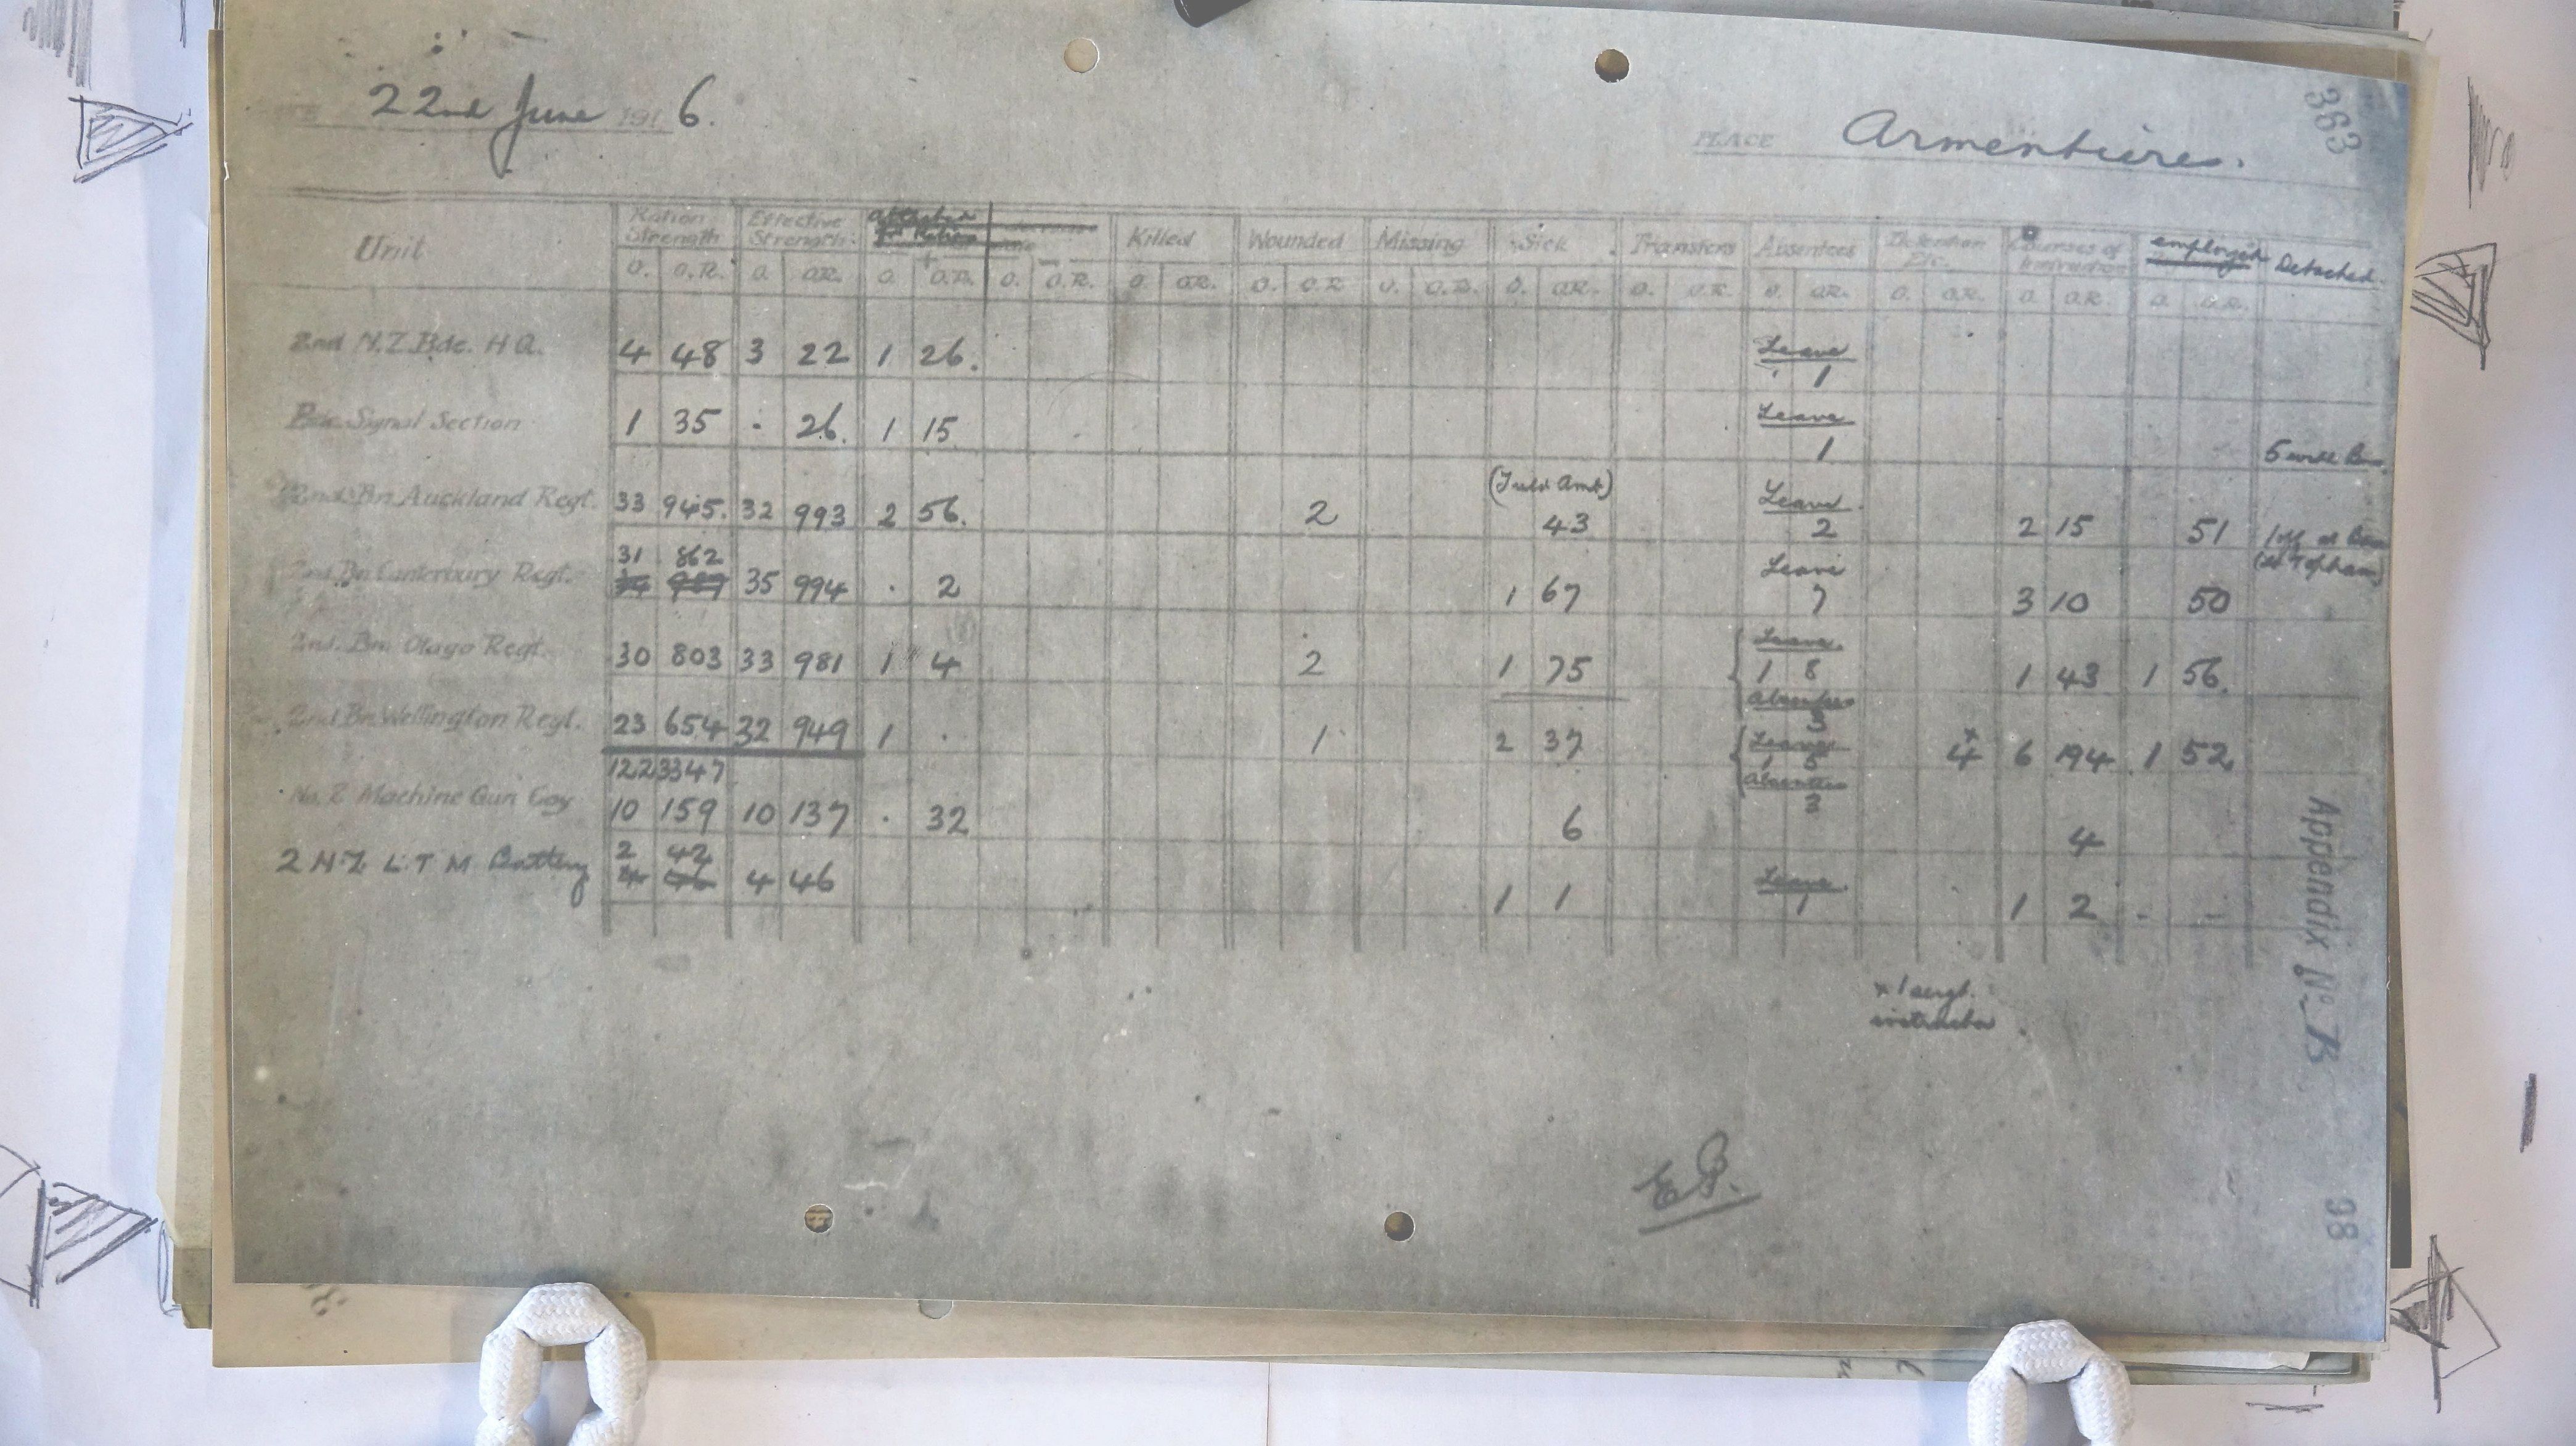 22nd June 1916.
PLACE Armentieres.
363
Unit
Ration Strength
Effective Strength
attached for Rations
Killed
Wounded
Missing
Sick
Transfers
Absentees
Detention Etc.
Courses of Instruction
employed
Detached.
O. O.R. O. O.R. O. + O.R. O. - O.R. O. O.R. O. O.R. O. O.R. O. O.R. O. O.R. O. O.R. O. O.R. O. O.R. O. O.R.
2nd N.Z. Bde. H.Q. 4 48 3 22 1 26. Leave 1
Bde. Signal Section 1 35 - 26. 1 15 Leave 1
5 with
2nd. Bn. Auckland Regt. 33 945. 32 993 2 56. 2 (Field Amb) 43 Leave 2 2 15 51
1 off at
2nd. Bn. Canterbury Regt. 31 862 35 994 . 2 1 67 Leave 7 3 10 50
2nd. Bn. Otago Regt. 30 803 33 981 1 4 2 1 75 Leave. 1 8 Absentees 3 1 43 1 56.
2nd Bn. Wellington Regt. 23 654 32 949 1 . 1 2 37 Leave 1 5 Absentees 3 x 4 6 194 1 52
122 3347
No. 2 Machine Gun Coy 10 159 10 137 . 32 6 4
2 N.Z. L.T.M Battery 2 42 4 46 4 46 1 1 Leave. 1 1 2 -
x 1 sergt. instructor
Appendix No. B
E.P.
98